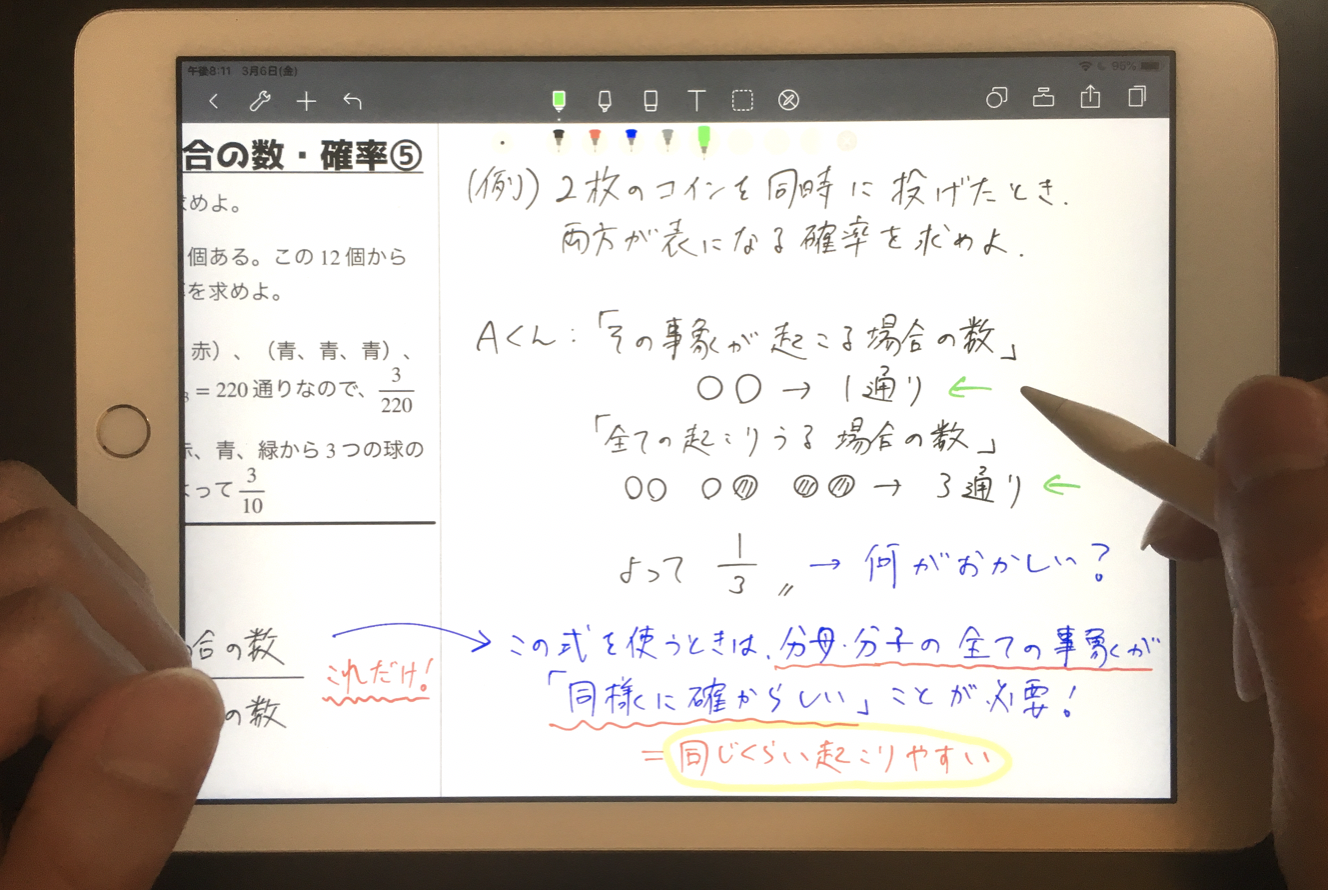 午後8:11 3月6日(金)
95%
合の数・確率⑤
めよ。
個ある。この12個から
を求めよ。
赤)、(青、青、青)、
₃ = 220 通りなので、3/220
、青、緑から3つの球の
って 3/10
合の数
の数
これだけ!
(例) 2枚のコインを同時に投げたとき.
両方が表になる確率を求めよ.
Aくん:「その事象が起こる場合の数」
○○ → 1通り ←
「全ての起こりうる場合の数」
→ 3通り ←
よって 1/3 〃 → 何がおかしい?
この式を使うときは、分母・分子の全ての事象が
「同様に確からしい」ことが必要!
= 同じくらい起こりやすい